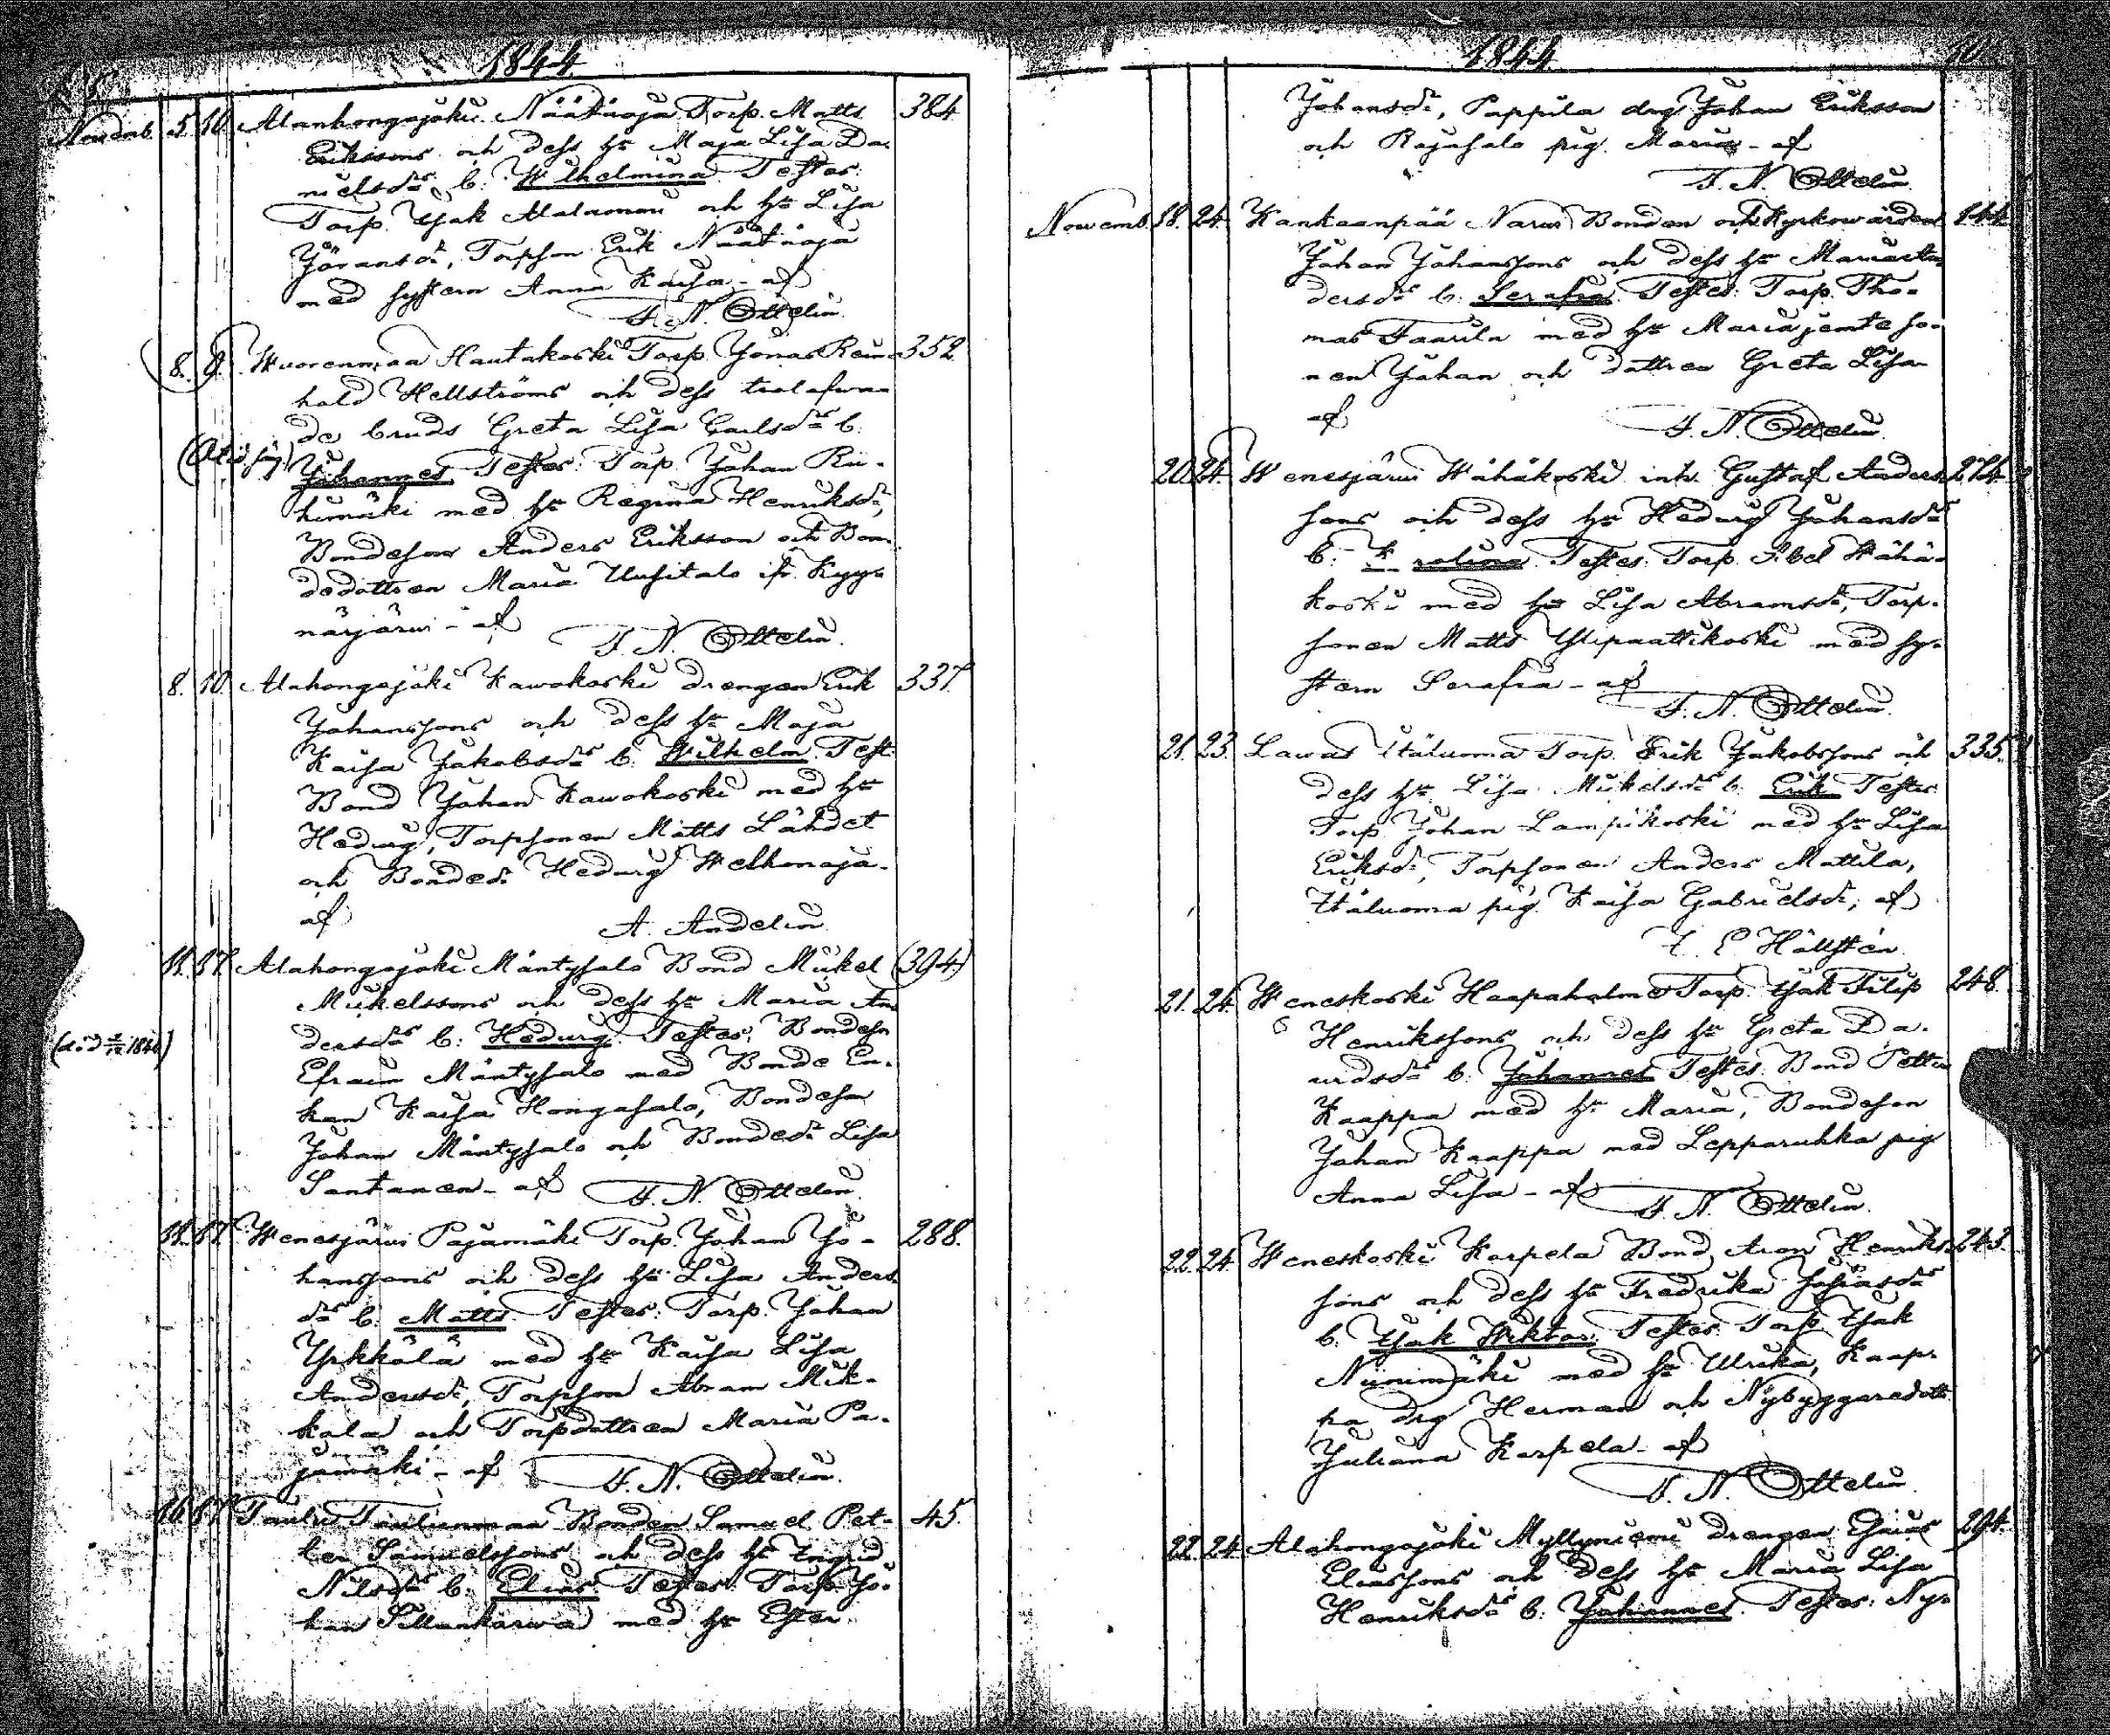 1844
Novemb. 5. 10. Alanhongajoki Näätäoja Torp. Matts 384
Erikssons och dess hu Maja Lisa Da-
nielsdr b: Wilhelmina Testes:
Torp. Isak Alaluomi och hu Lisa
Göransdr, Torpson Erik Näätäoja
med systern Anna Kaisa - af
F. N. Ottelin.
8. 9. Wuorenmaa Hautakoski Torp. Jonas Rein- 352
hold Hellströms och dess trolofwa-
de bruds Greta Lisa Carlsdr b.
Johannes Testes: Torp. Johan Rii-
himäki med hu Regina Henriksdr,
Bondeson Anders Eriksson och Bon-
dedottren Maria Uusitalo fr. Kyy-
närjärwi - af
F. N. Ottelin.
8. 10. Alahongajoki Kawokoski drengen Erik 337.
Johanssons och dess hu Maja
Kaisa Jakobsdr b. Wilhelm Test:
Bond Johan Kawokoski med hu
Hedwig, Torpsonen Matts Lähdet
och Bondedr Hedwig Welhonoja -
af
A. Andelin
11. 17. Alahongajoki Mäntysalo Bond Mickel (394)
Mickelssons och dess hu Maria An-
dersdr b: Hedwig. Testes: Bondeson
(död 1846)
Efraim Mäntysalo med Bonde En-
kan Kaisa Hongasalo, Bondeson
Johan Mäntysalo och Bondedr Lisa
Santanen - af F. N. Ottelin
11. 17. Wenesjärwi Pajamäki Torp. Johan Jo- 288.
hanssons och dess hu Lisa Anders-
dr b. Matts Testes: Torp. Johan
Yrkkälä med hu Kaisa Lisa
Andersdr, Torpson Abram Mik-
kola och Torpdottren Maria Pa-
jamäki - af F. N. Ottelin.
16. 17. Taulu Taulunmaa Bonden Samuel Pet- 45.
ter Samuelssons och dess hu Ingrid
Nilsdr b. Elias Testes: Torp. Jo-
han Sillankorwa med hu Ester
1844
Johansdr, Pappila drg Johan Eriksson
och Rajasalo pig. Maria - af
F. N. Ottelin
Novemb. 18. 24. Kankaanpää Narwi Bonden och Kyrkowärden 144
Johan Johanssons och dess hu Maria An-
dersdr b. Serafia Testes: Torp. Tho-
mas Taurila med hu Maria jemte so-
nen Johan och dottren Greta Lisa
af
F. N. Ottelin
20. 24. Wenesjärwi Wähäkoski inh. Gustaf Anders- 274.
sons och dess hu Hedwig Johansdr
b: K rolina Testes: Torp. Abel Wähä-
koski med hu Lisa Abramsdr, Torp-
sonen Matts Ylipaattikoski med sy-
stern Serafia - af
F. N. Ottelin
21. 23. Lawas Itäluoma Torp. Erik Jakobssons och 335.
dess hu Lisa Mickelsdr b. Erik Testes:
Torp. Johan Lampikoski med hu Lisa
Eriksdr, Torpsonen Anders Mattila,
Itäluoma pig. Kaisa Gabrielsdr, af
Hällstén
21. 24. Weneskoski Haapaholma Torp. Isak Filip 248.
Henrikssons och dess hu Greta Da-
widsdr b. Johannes Testes: Bond Petter
Kaappa med hu Maria, Bondeson
Johan Kaappa med Lepparuhka pig
Anna Lisa - af F. N. Ottelin
22. 24. Weneskoski Karpela Bond Aron Henriks- 243.
sons och dess hu Fredrika Josiasdr
b. Isak Wiktor Testes: Torp. Isak
Niinimäki med hu Ulrika, Kaap-
pa drg Herman och Nybyggaredott.
Juliana Karpela - af
F. N. Ottelin
22. 24. Alahongajoki Myllyniemi drengen Esaias 294.
Eliassons och dess hu Maria Lisa
Henriksdr b: Johannes. Testes: Ny-